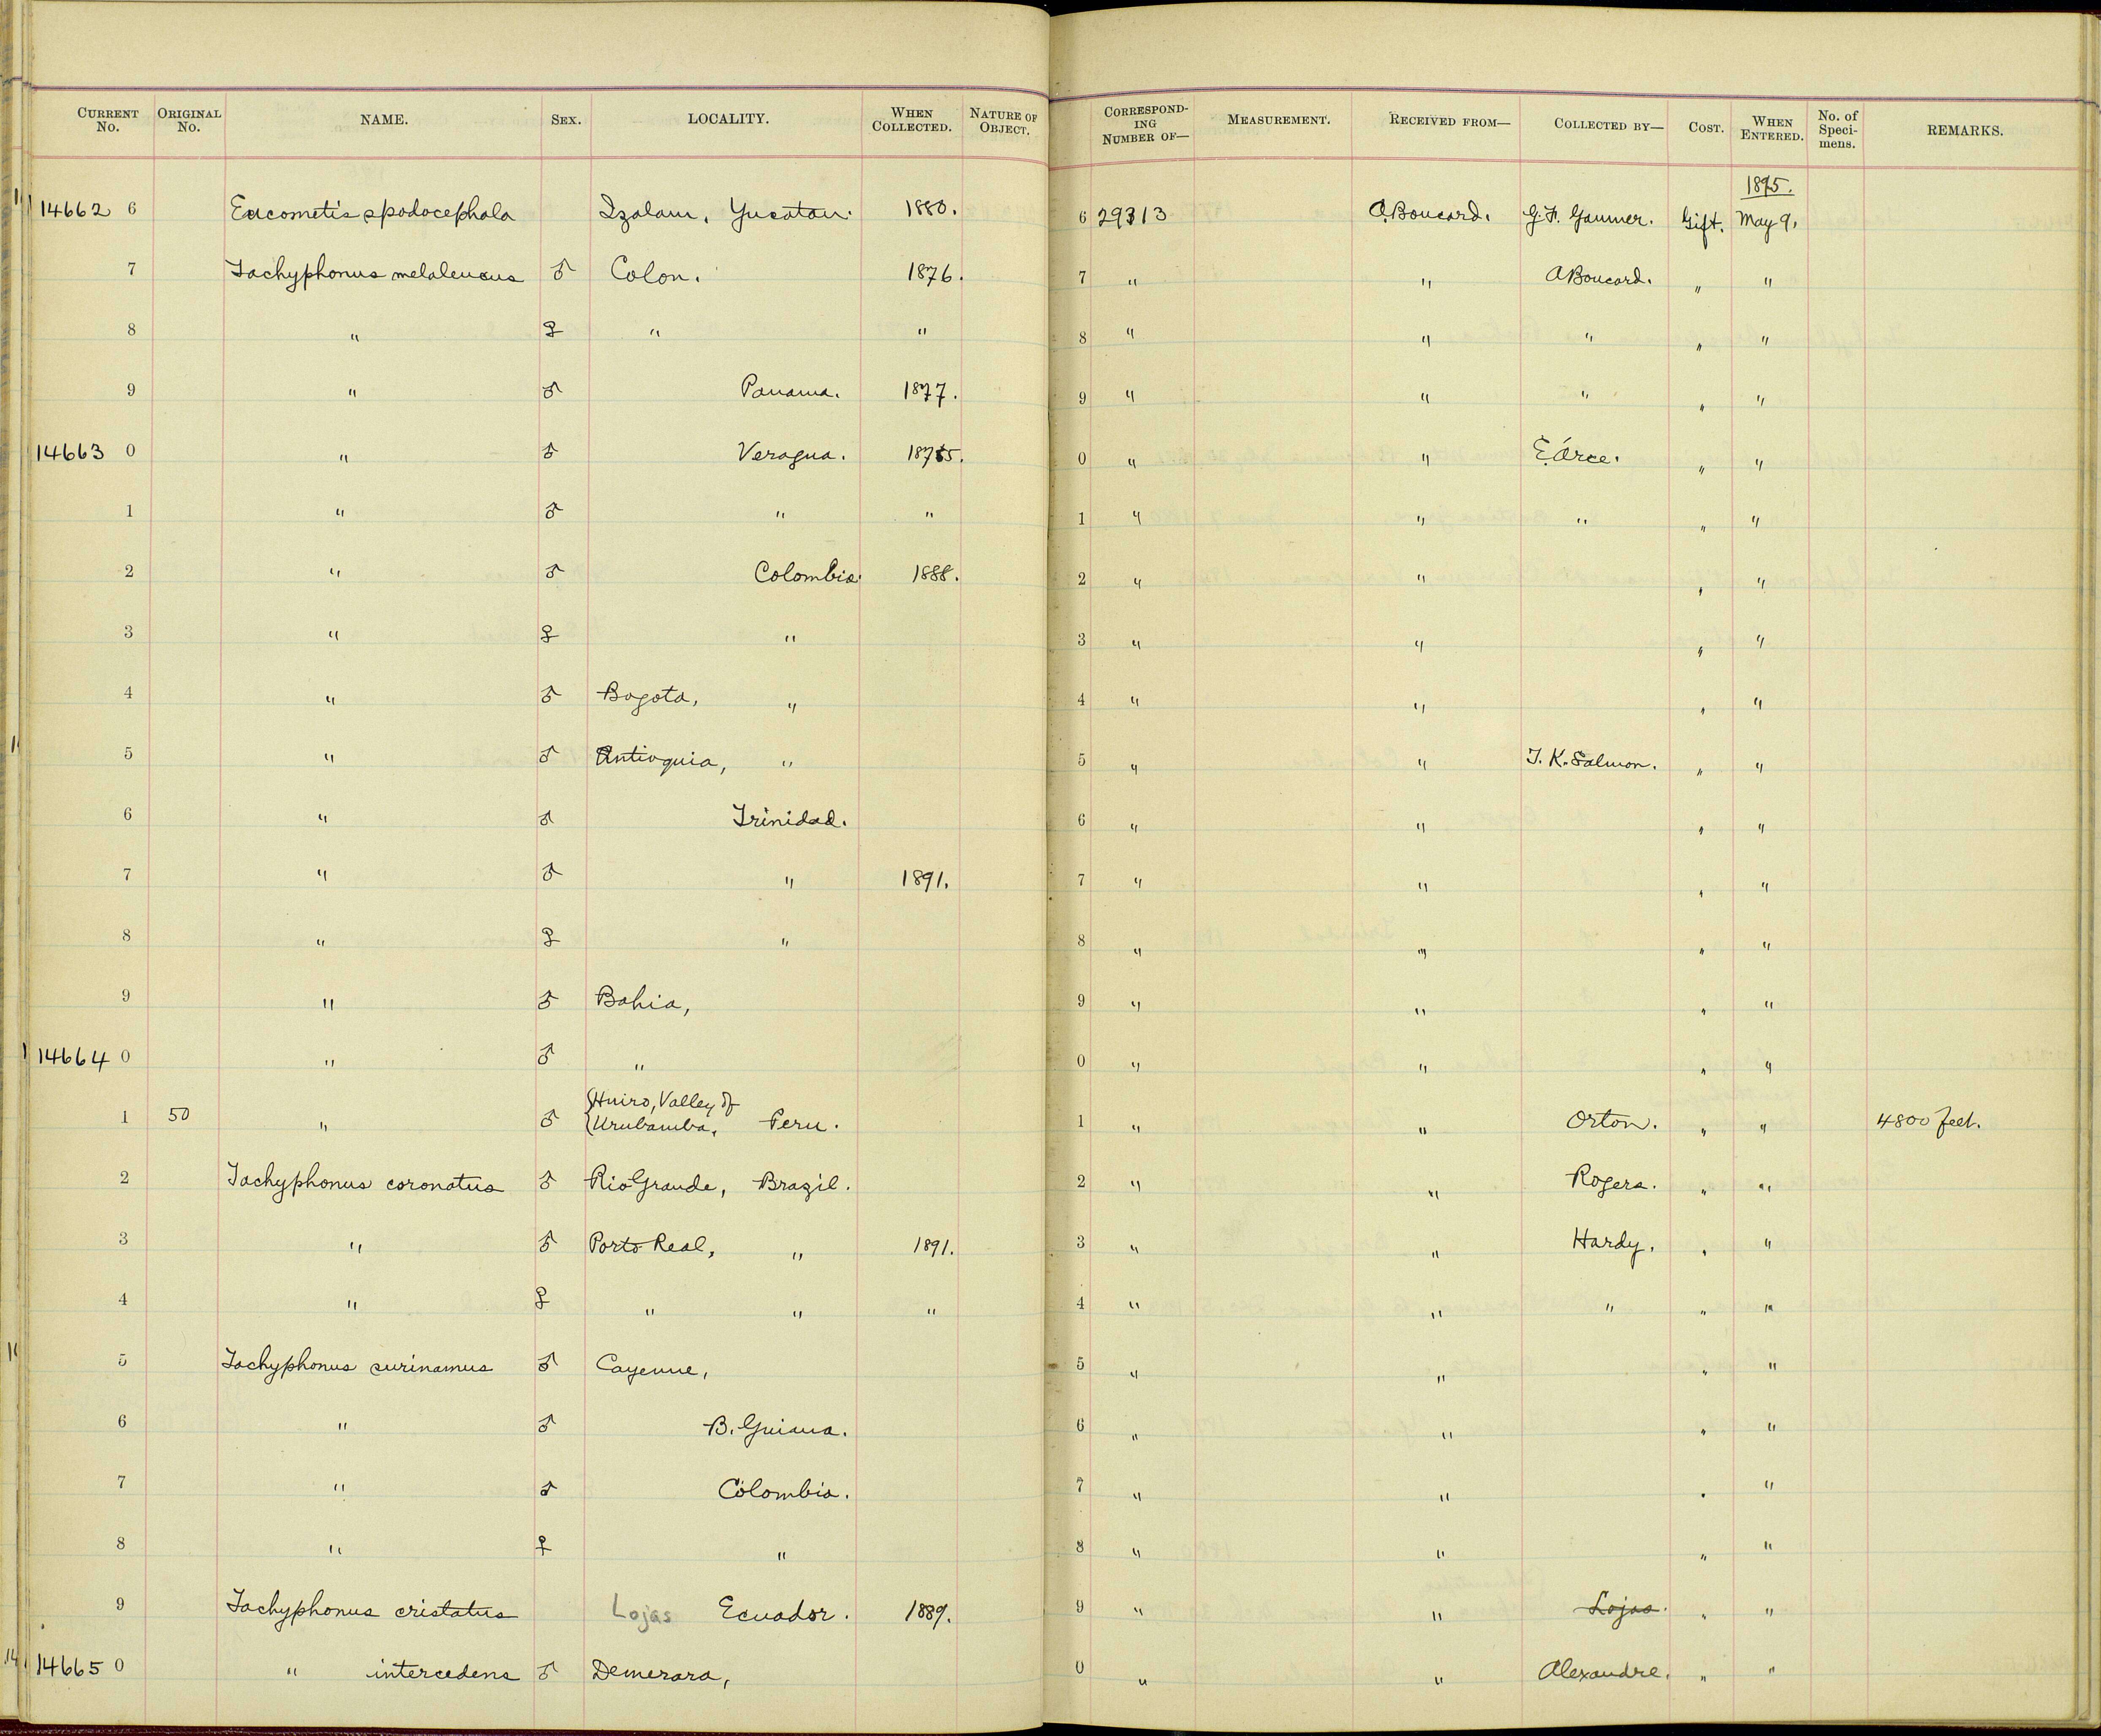 CURRENT No. ORIGINAL No. NAME. SEX. LOCALITY. WHEN COLLECTED. NATURE OF OBJECT. CORRESPONDING NUMBER OF— MEASUREMENT. RECEIVED FROM— COLLECTED BY— COST. WHEN ENTERED. No. of Specimens. REMARKS.
1895.
14662 6 Eucometis spodocephala Izalam, Yucatan. 1880. 6 29313 A. Boucard. G. F. Gaumer. Gift. May 9.
7 Tachyphonus melaleucus ♂ Colon. 1876. 7 " " A Boucard. " "
8 " ♀ " " 8 " " " " "
9 " ♂ Panama. 1877. 9 " " " " "
14663 0 " ♂ Veragua. 1875. 0 " " E. Arce. " "
1 " ♂ " " 1 " " " " "
2 " ♂ Colombia. 1888. 2 " " " "
3 " ♀ " 3 " " " "
4 " ♂ Bogota, " 4 " " " "
5 " ♂ Antioquia, " 5 " " T. K. Salmon. " "
6 " ♂ Trinidad. 6 " " " "
7 " ♂ " 1891. 7 " " " "
8 " ♀ " 8 " " " "
9 " ♂ Bahia, 9 " " " "
14664 0 " ♂ " 0 " " " "
1 50 " ♂ {Huiro, Valley of Urubamba, Peru. 1 " " Orton. " " 4800 feet.
2 Tachyphonus coronatus ♂ Rio Grande, Brazil. 2 " " Rogers. " "
3 " ♂ Porto Real, " 1891. 3 " " Hardy. " "
4 " ♀ " " " 4 " " " " "
5 Tachyphonus surinamus ♂ Cayenne, 5 " " " "
6 " ♂ B. Guiana. 6 " " " "
7 " ♂ Colombia. 7 " " " "
8 " ♀ " 8 " " " "
9 Tachyphonus cristatus Lojas Ecuador. 1889. 9 " " Lojas. " "
14665 0 " intercedens ♂ Demerara, 0 " " Alexandre. " "